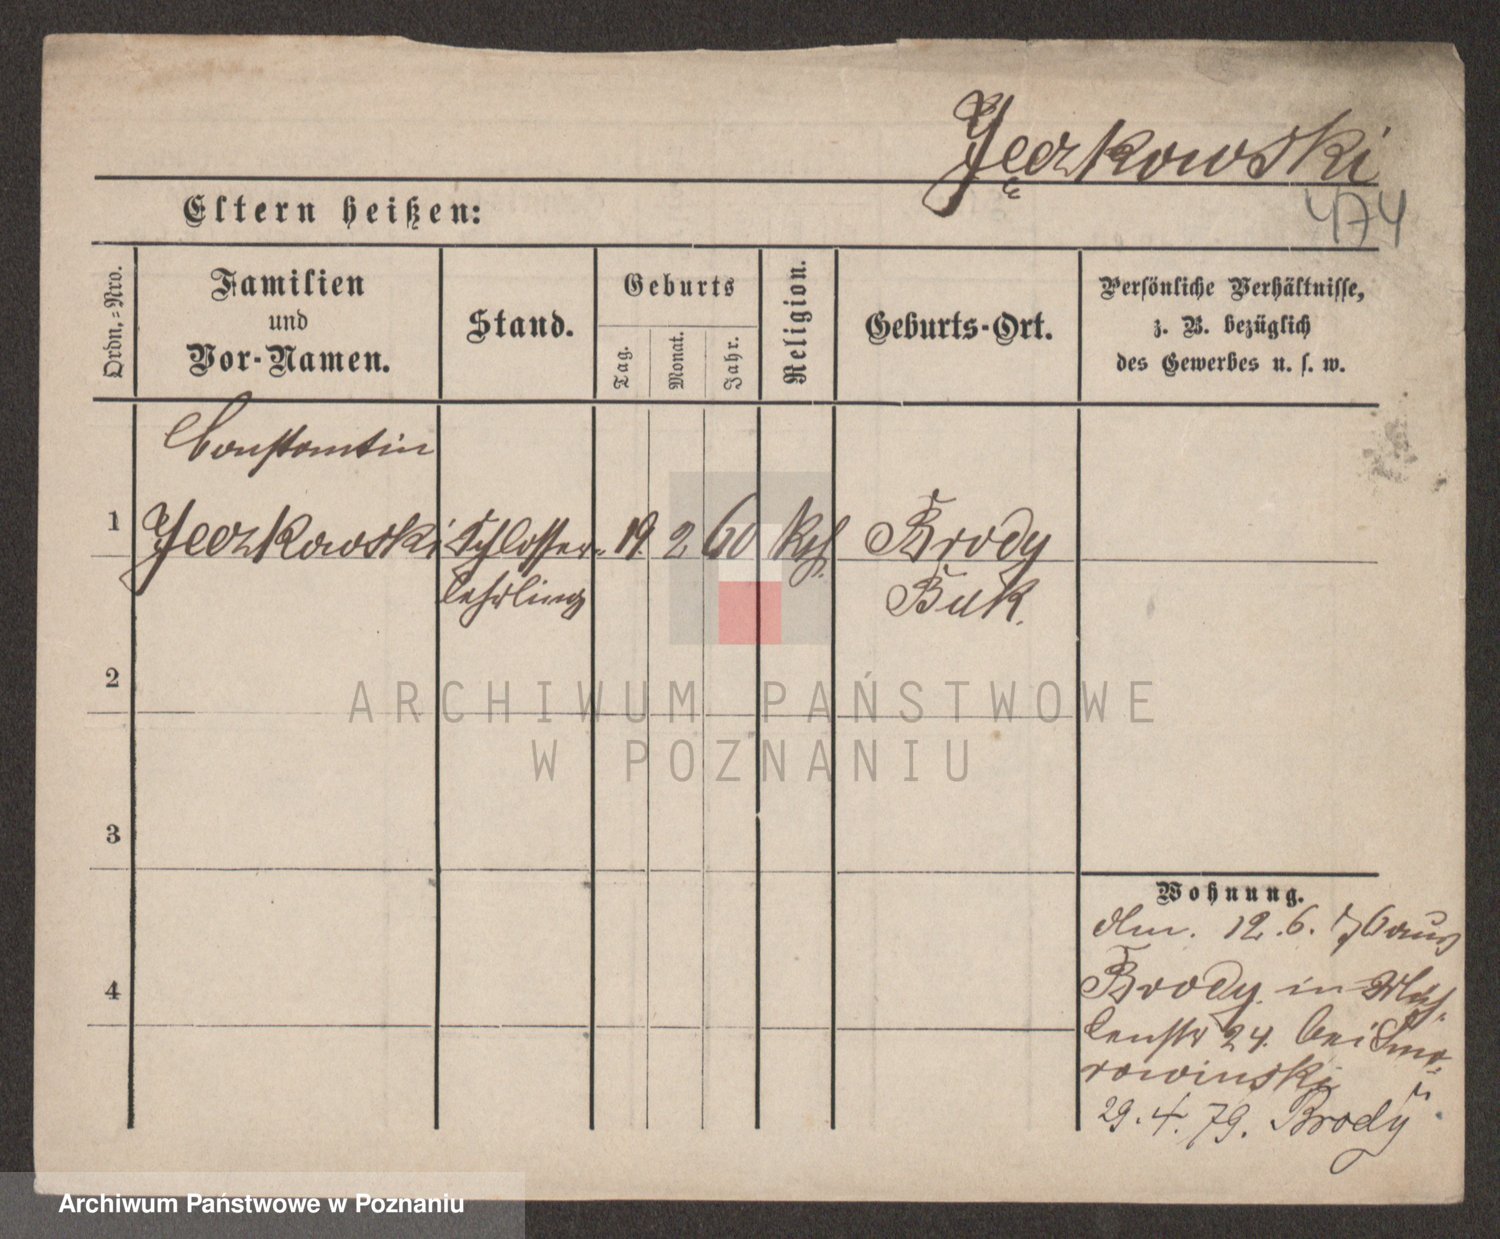 Jęczkowski
474
Eltern heißen:
Ordn.=Nro.
Familien
und
Vor-Namen.
Stand.
Geburts
Tag.
Monat.
Jahr.
Religion.
Geburts-Ort.
Persönliche Verhältnisse,
z. B. bezüglich
des Gewerbes u. s. w.
Constantin
1 Jeczkowski Schlosser- 19. 2 60 kth. Brody
lehrling Buk.
2
ARCHIWUM PAŃSTWOWE
W POZNANIU
3
Wohnung.
12.6.76 aus
4
Brody in Müh-
lenstr 24. bei Smo-
rowinski
29.4.79. Brody
Archiwum Państwowe w Poznaniu